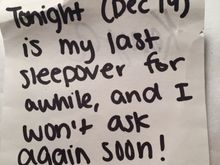 Tonight (Dec 19)
is my last
sleepover for
awhile, and I
won't ask
again soon!